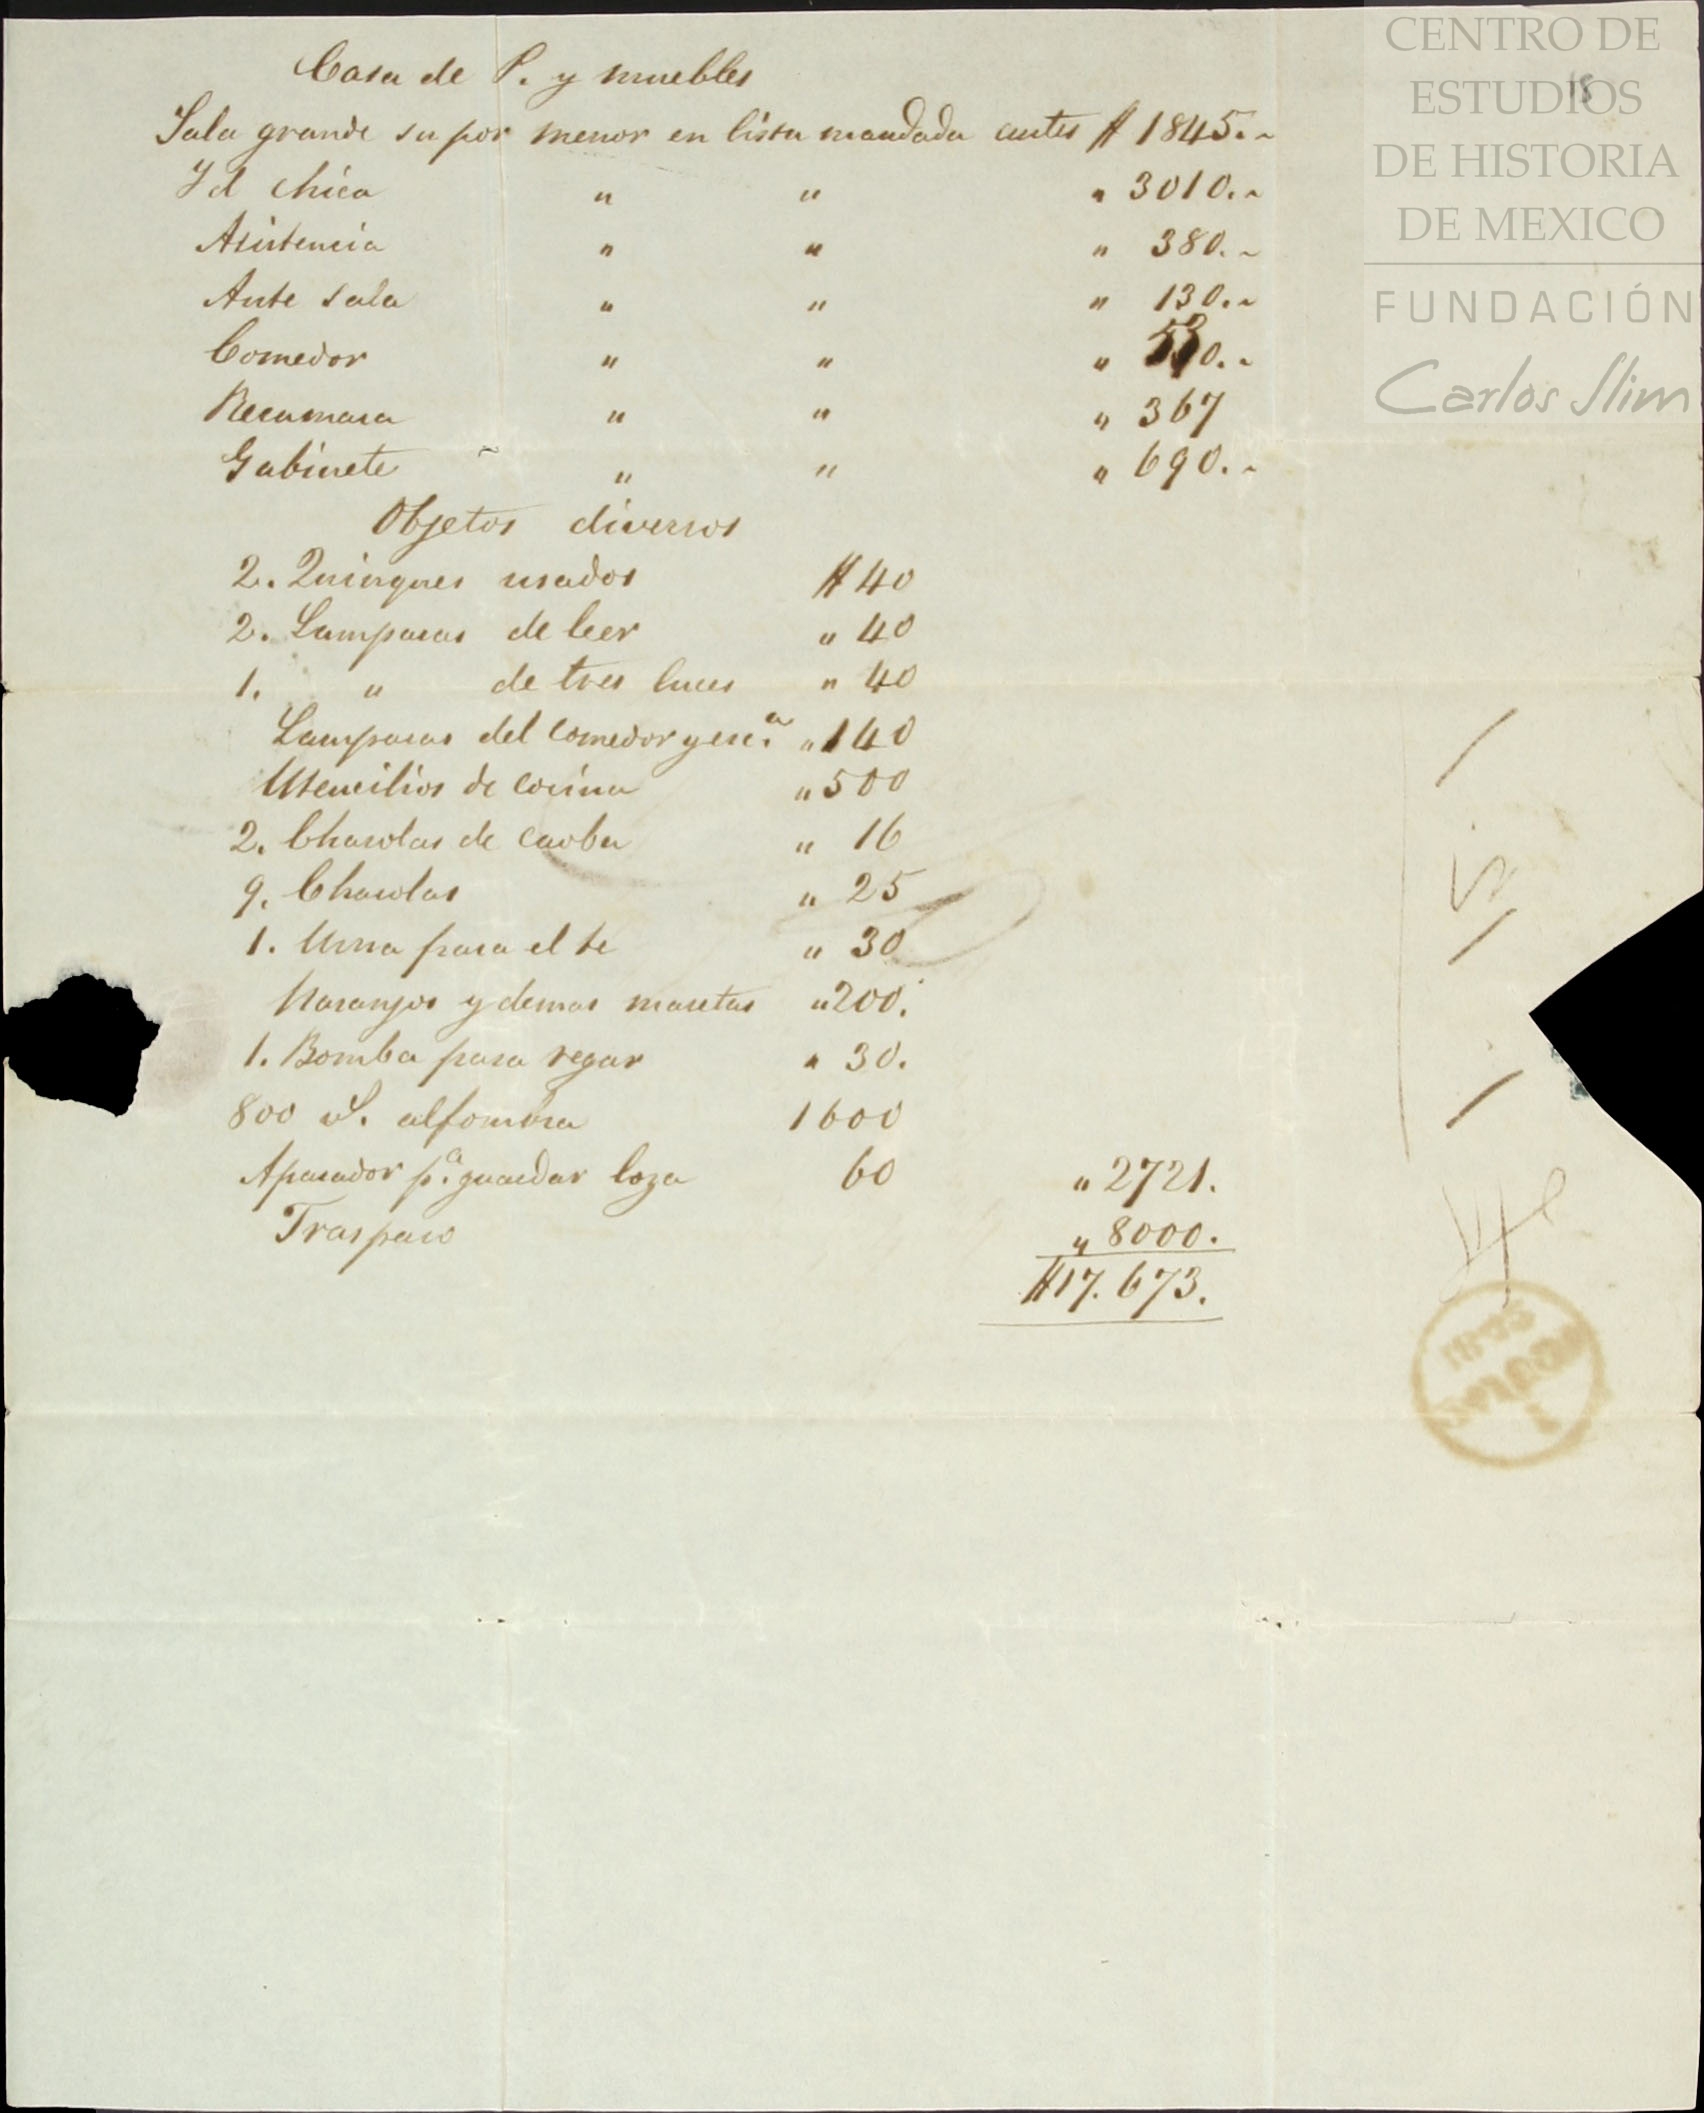 CENTRO DE
ESTUDIOS
DE HISTORIA
DE MEXICO
FUNDACIÓN
Carlos Slim
18
Casa de P. y muebles
Sala grande su por menor en lista mandada antes $ 1845.~
Yd chica " " " 3010.~
Asistencia " " " 380.~
Ante sala " " " 130.~
Comedor " " "
Recamara " " " 367
Gabinete ~ " " " 690.~
Objetos diversos
2. Quinques usados $ 40
2. Lamparas de leer " 40
1. " de tres luces " 40
Lamparas del comedor y esc.a " 140
Utencilios de cocina " 500
2. Charolas de caoba " 16
9. Charolas " 25
1. Urna para el te " 30
Naranjos y demas masetas " 200.
1. Bomba para regar " 30.
800 vs. alfombra 1600
Aparador p.a guardar loza 60 " 2721.
Traspaso " 8000.
$17.673.